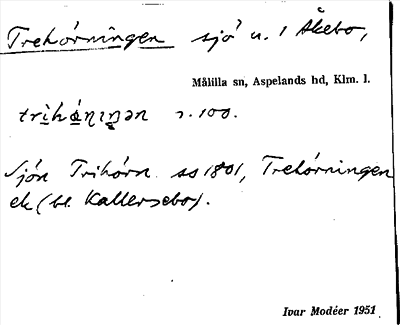 Trehörningen sjö u. 1 Åkebo,
Målilla sn, Aspelands hd, Klm. l.
sjön Trihörn ss 1801, Trehörningen
ek (bl. Kallersebo).
Ivar Modéer 1951